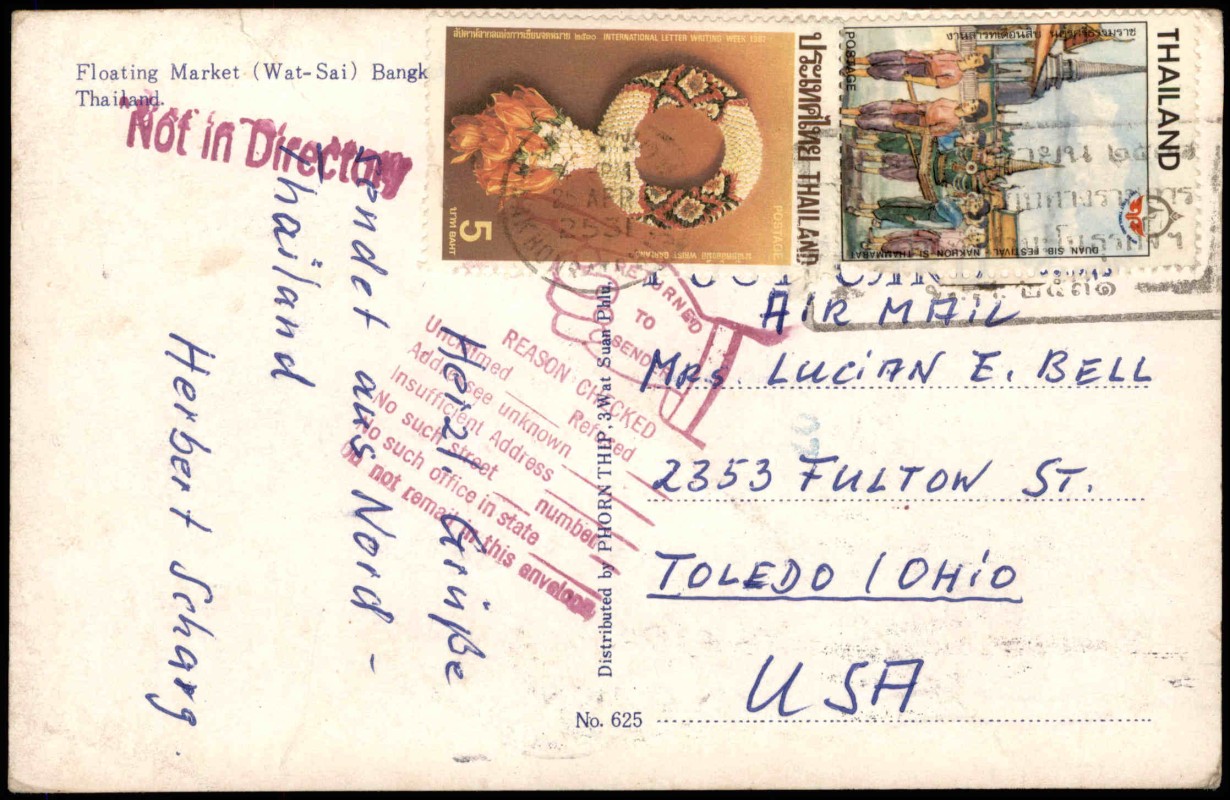 Floating Market (Wat-Sai) Bangk
Thailand.
Not in Directory
สัปดาห์สากลแห่งการเขียนจดหมาย ๒๕๓๐ INTERNATIONAL LETTER WRITING WEEK 1987
ประเทศไทย THAILAND
POSTAGE
5
บาท BAHT
WRIST GARLAND
THAILAND
POSTAGE
งานสารทเดือนสิบ นครศรีธรรมราช
DUAN SIB FESTIVAL - NAKHON SI THAMMARAT
25 APR
2531
RETURNED
TO
SENDER
REASON CHECKED
Unclaimed Refused
Addressee unknown
Insufficient Address
No such street number
No such office in state
Do not remail in this envelope
AIR MAIL
Mrs. LUCIAN E. BELL
2353 FULTON ST.
TOLEDO / OHIO
USA
Herzl. Grüße
sendet aus Nord-
Thailand
Herbert Scharg.
Distributed by PHORN THIP, 3 Wat Suan Phlu,
No. 625